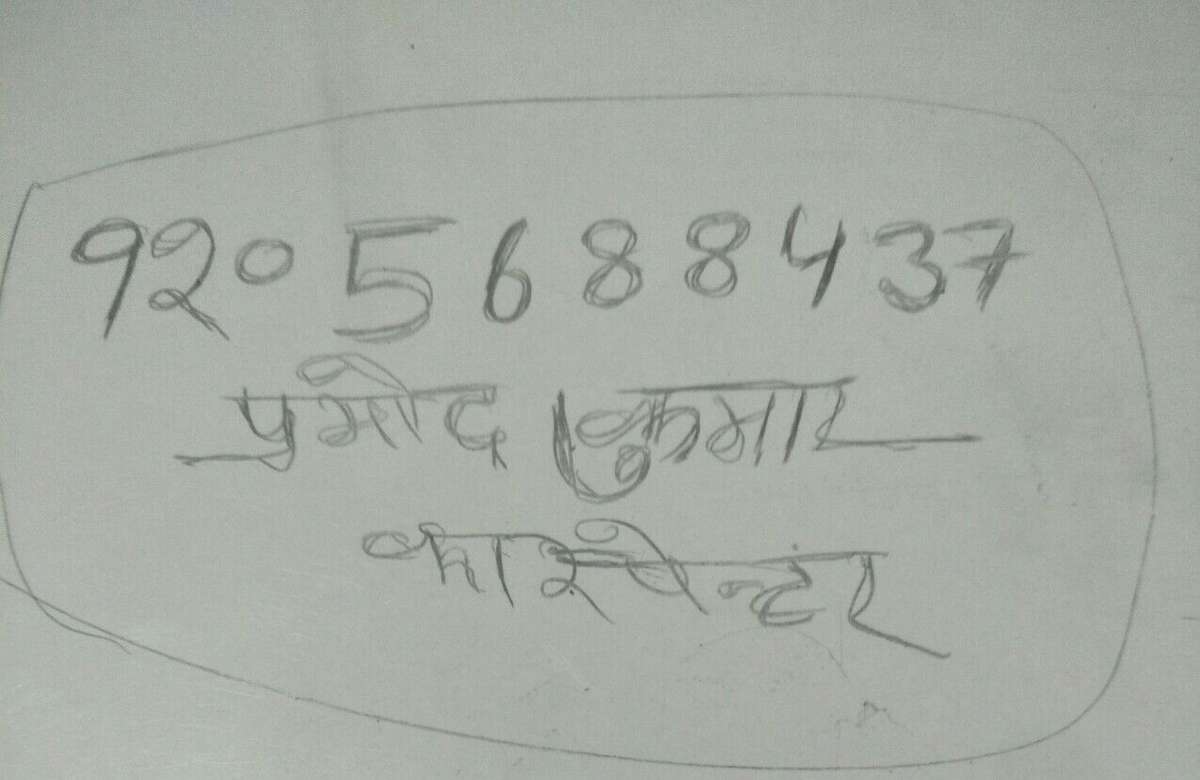 9२० 5688437
प्रमोद कुमार
कारपेन्टर